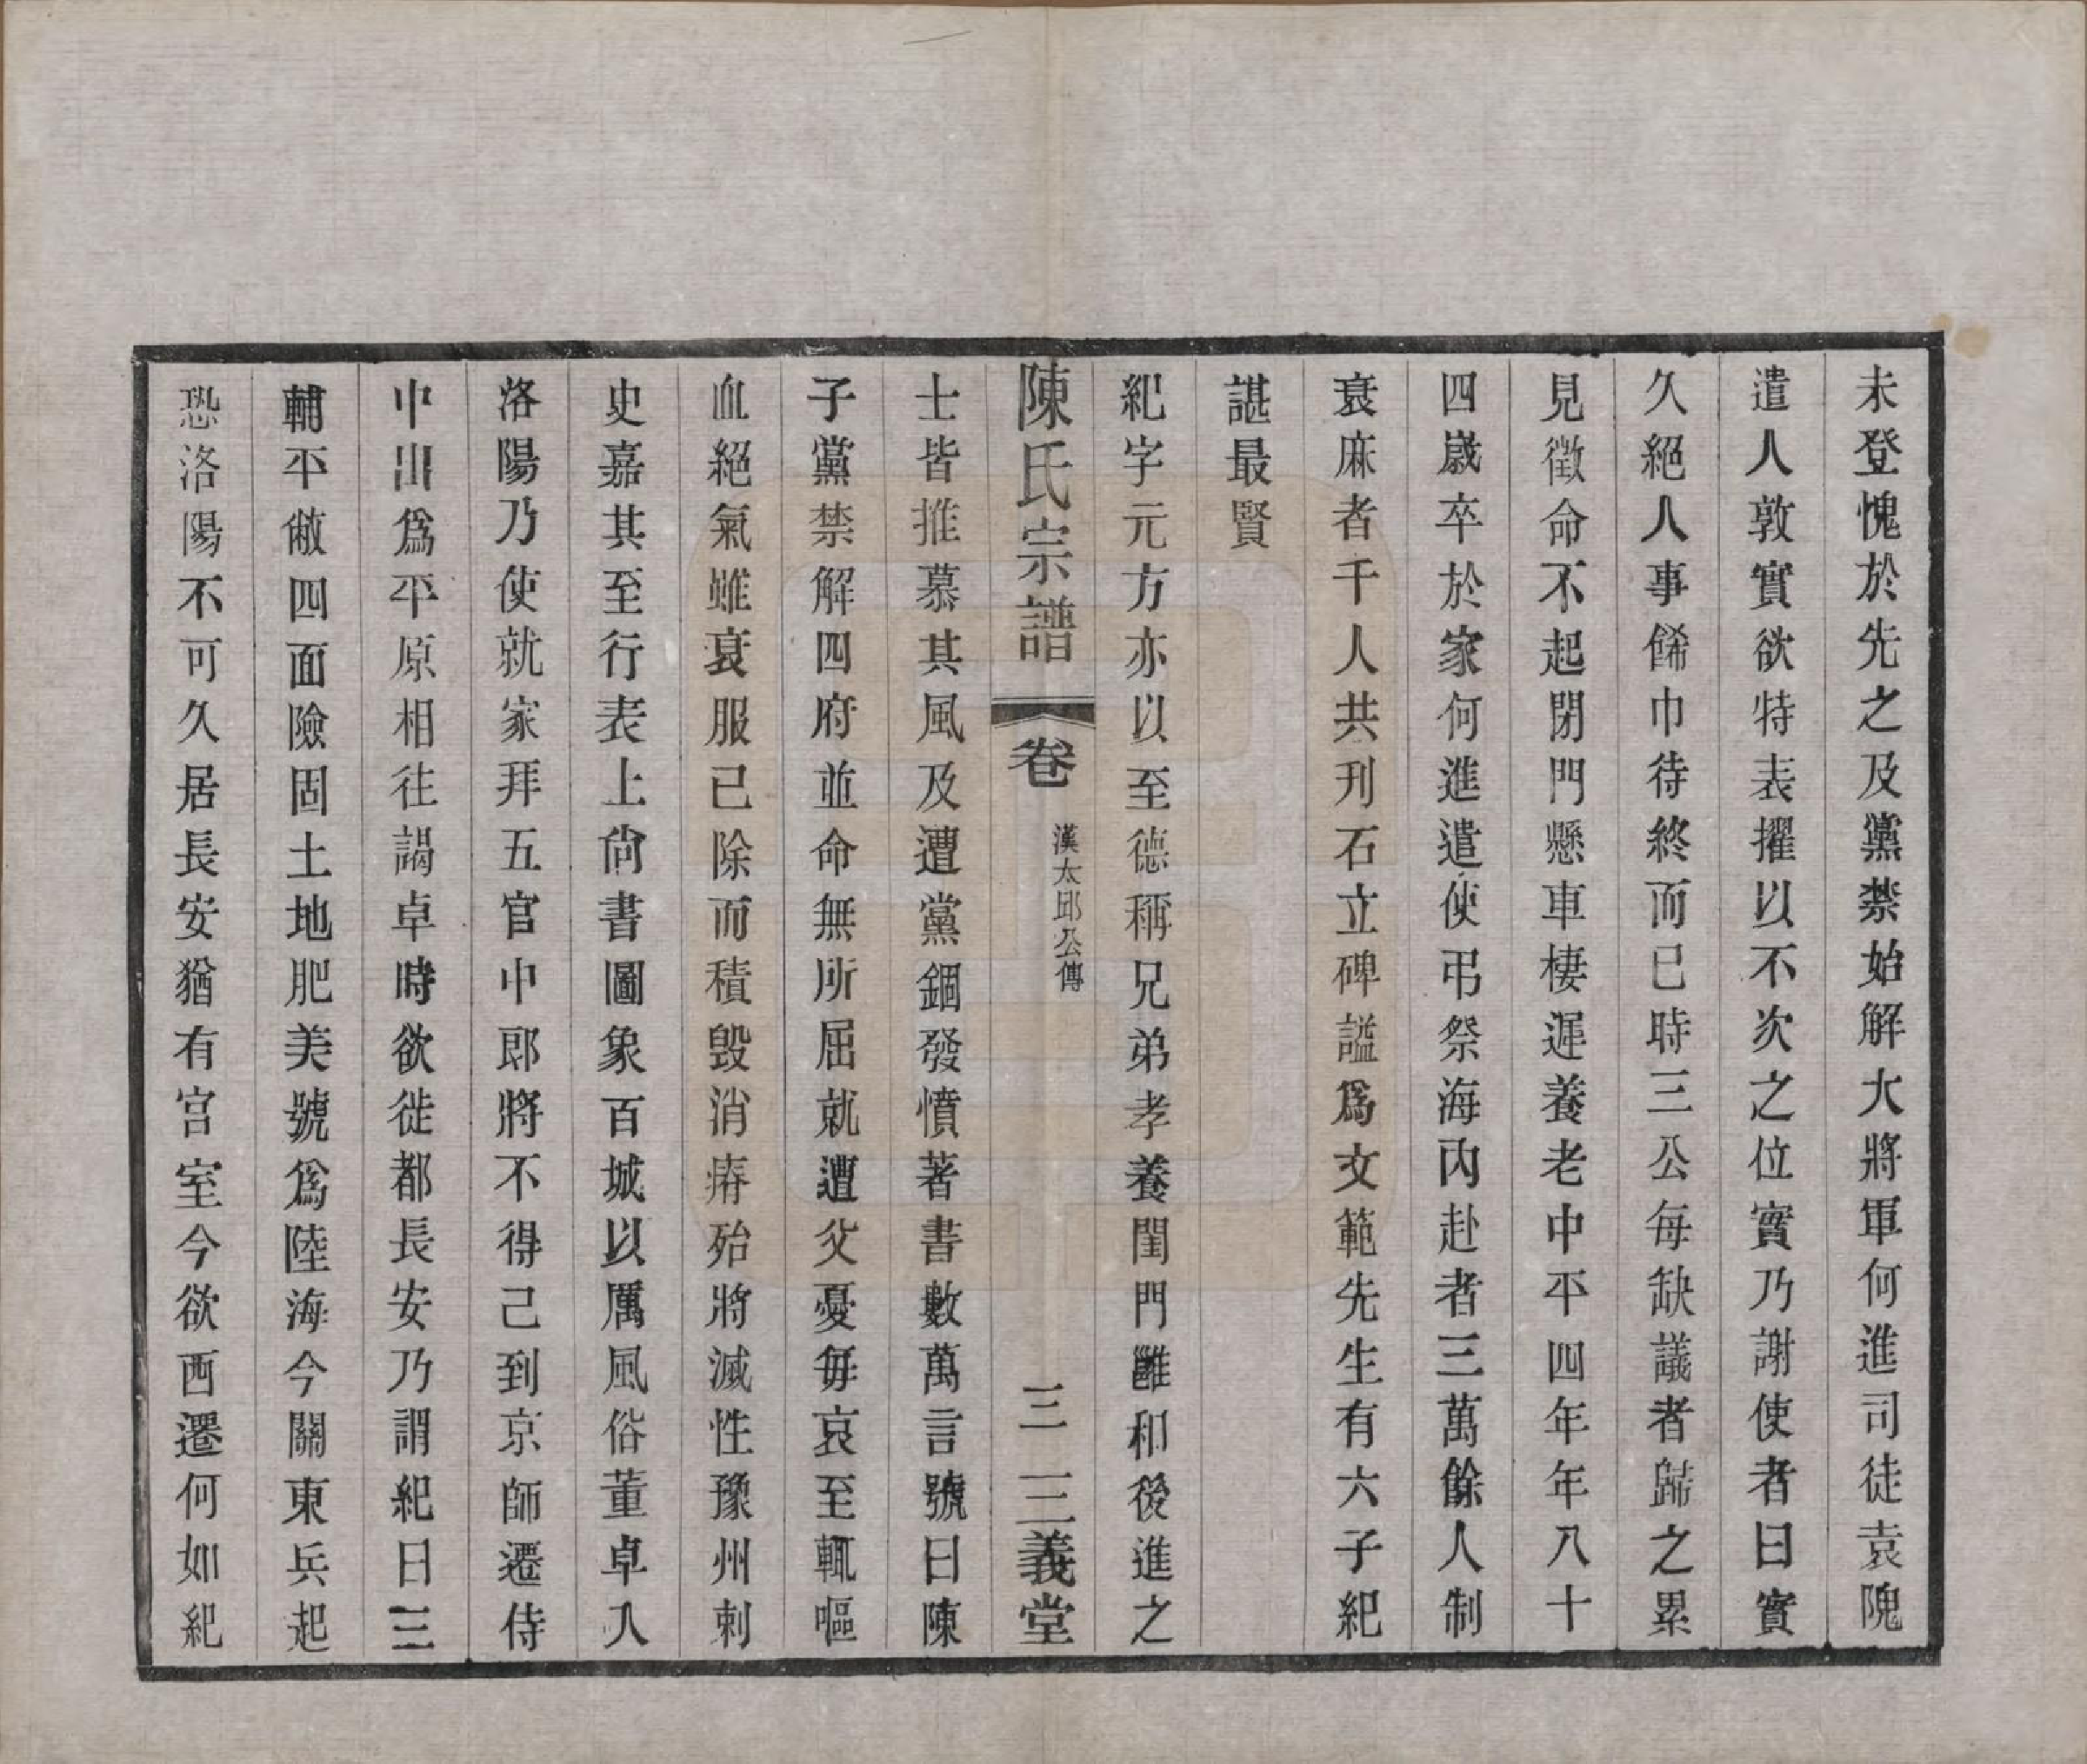 未登愧於先之及黨禁始解大將軍何進司徒袁隗
遣人敦實欲特表擢以不次之位實乃謝使者曰實
久絕人事餙巾待終而已時三公每缺議者歸之累
見徵命不起閉門懸車棲遲養老中平四年年八十
四歲卒於家何進遣使弔祭海內赴者三萬餘人制
衰麻者千人共刋石立碑謚爲文範先生有六子紀
諶最賢
紀字元方亦以至德稱兄弟孝養閨門雝和後進之
陳氏宗譜 卷 漢太邱公傳 三 三義堂
士皆推慕其風及遭黨錮發憤著書數萬言號曰陳
子黨禁解四府並命無所屈就遭父憂每哀至輒嘔
血絕氣雖衰服已除而積毀消瘠殆將滅性豫州刺
史嘉其至行表上尙書圖象百城以厲風俗董卓入
洛陽乃使就家拜五官中郎將不得己到京師遷侍
中出爲平原相往謁卓時欲徙都長安乃謂紀曰三
輔平敞四面險固土地肥美號爲陸海今關東兵起
恐洛陽不可久居長安猶有宮室今欲西遷何如紀